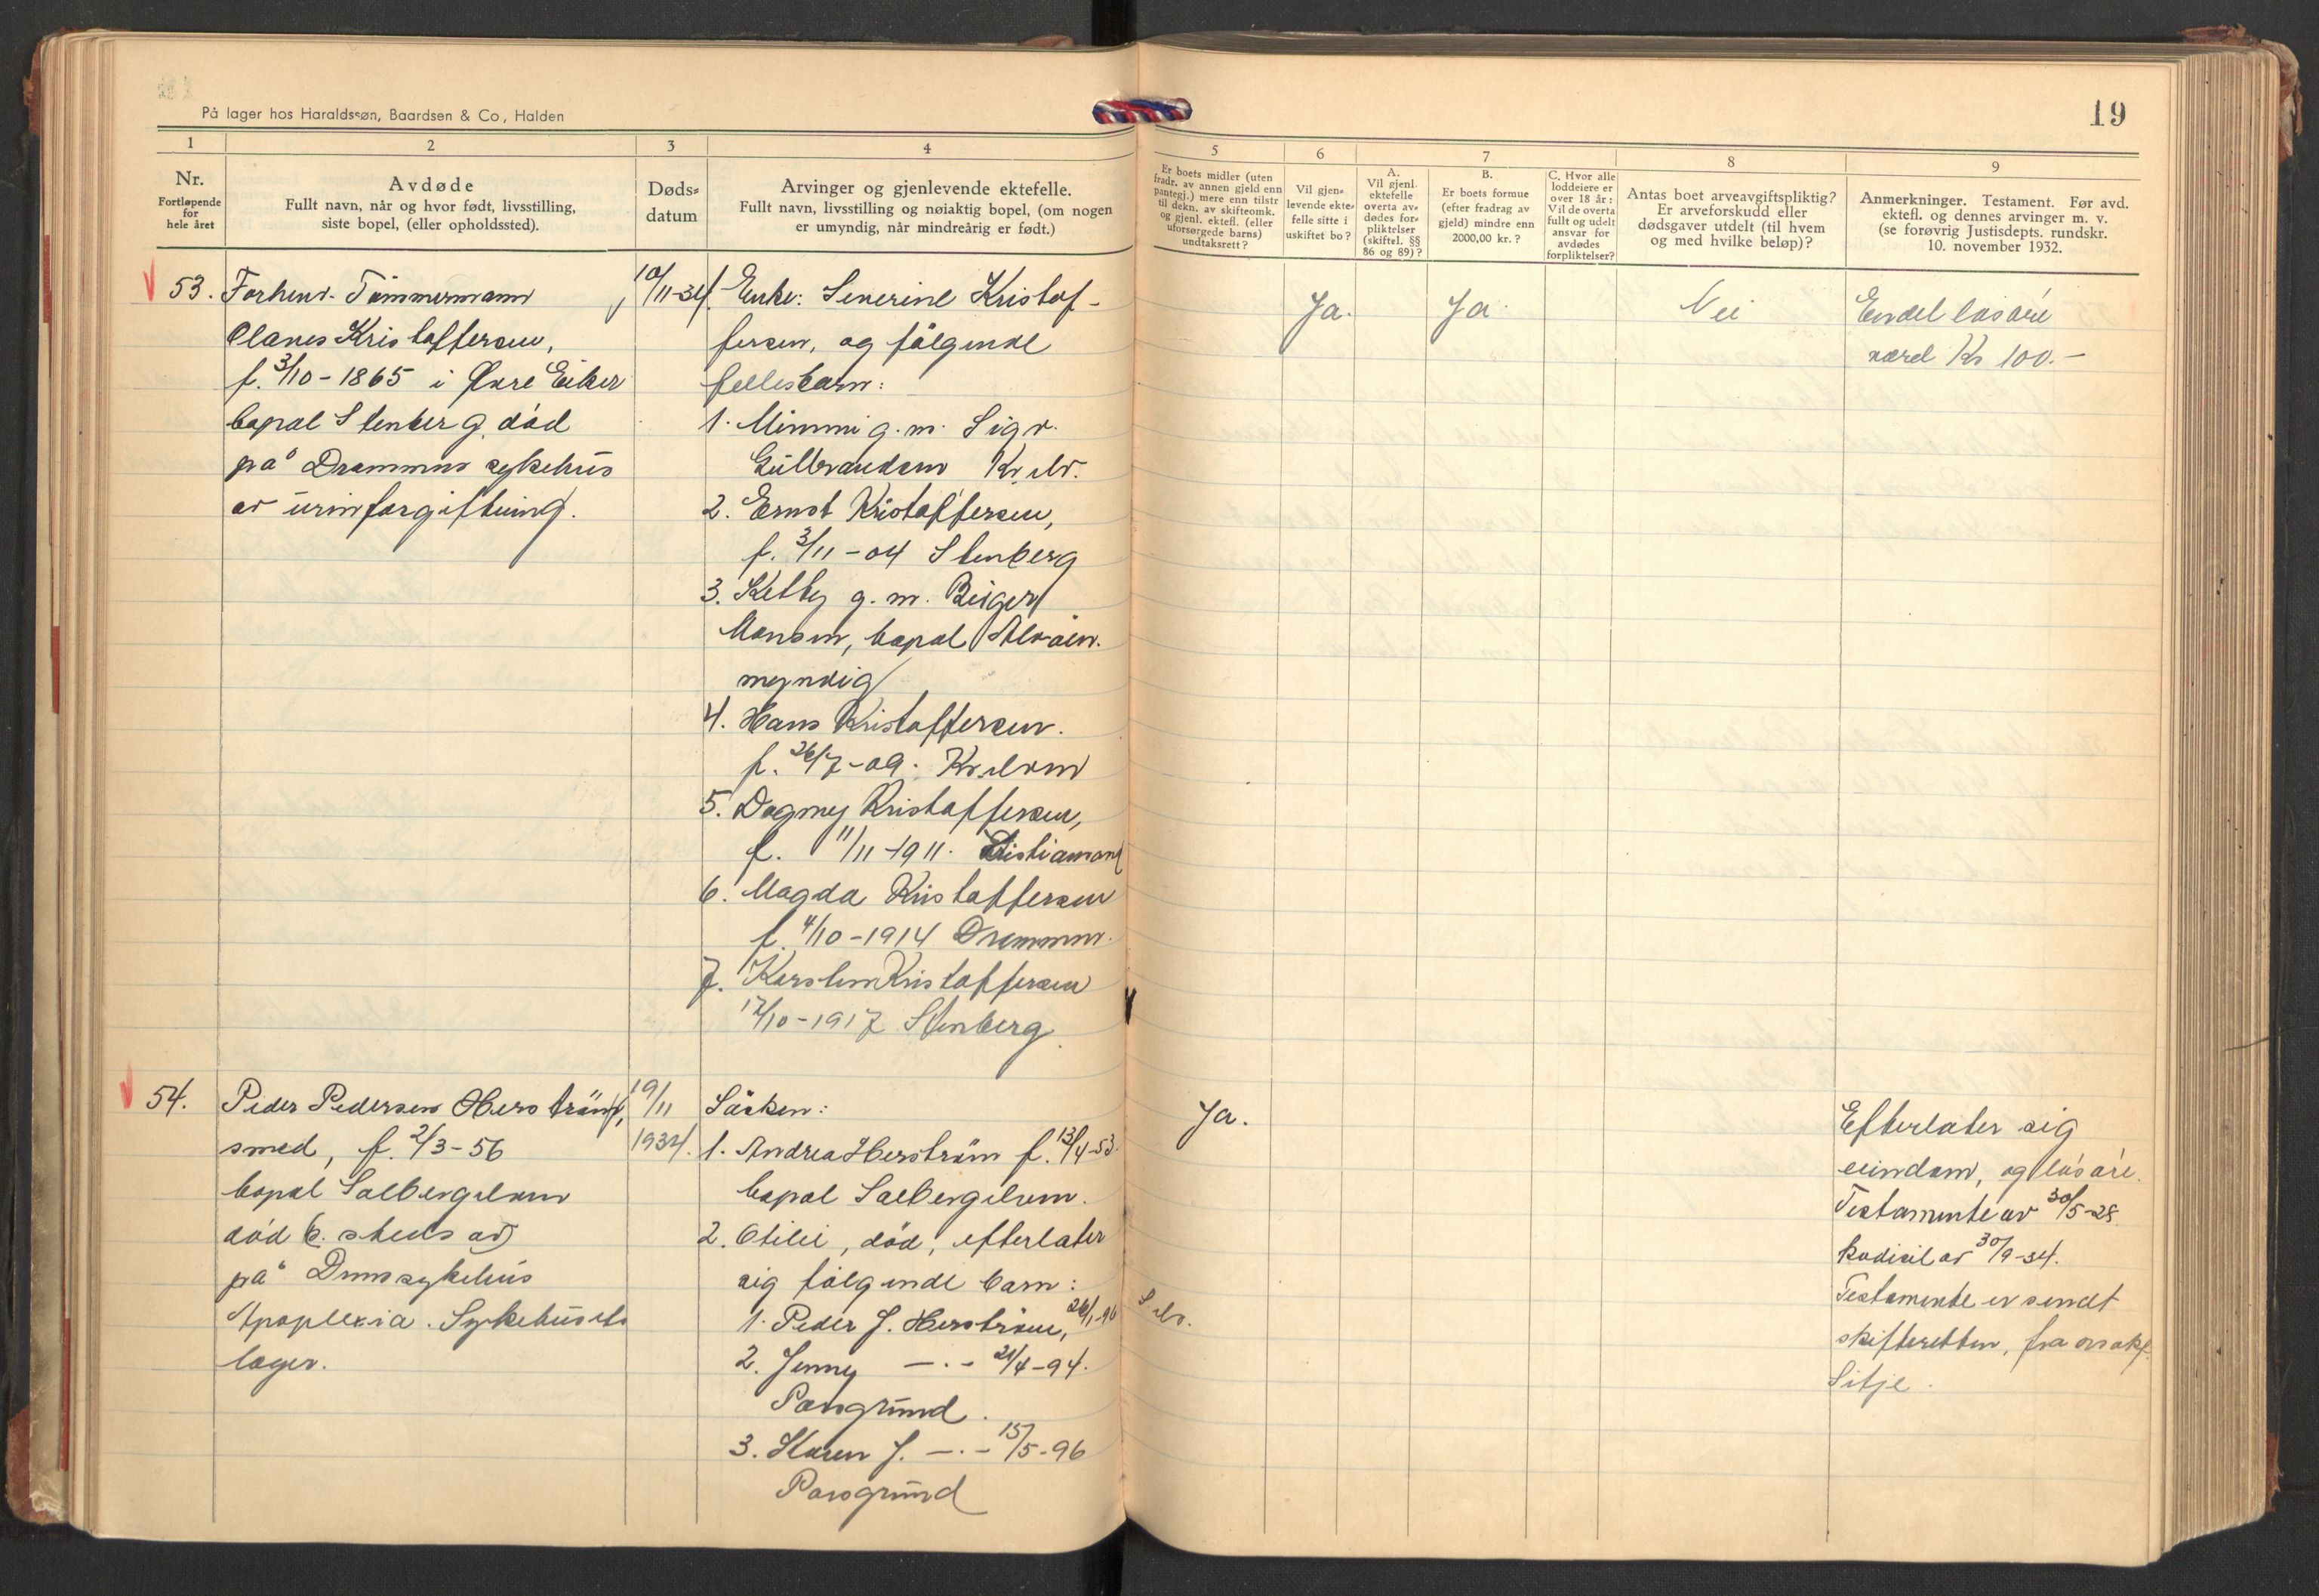 På lager hos Haraldssøn, Baardsen & Co, Halden
19
1
2
3
4
5
6
7
8
9
Nr.
Fortløpende
for
hele året
Avdøde
Fullt navn, når og hvor født, livsstilling,
siste bopel, (eller opholdssted).
Døds-
datum
Arvinger og gjenlevende ektefelle.
Fullt navn, livsstilling og nøiaktig bopel, (om nogen
er umyndig, når mindreårig er født.)
Er boets midler (uten
fradr. av annen gjeld enn
pantegj.) mere enn tilstr
til dekn. av skifteomk.
og gjenl. ektefl. (eller
uforsørgede barns)
undtaksrett?
Vil gjen-
levende ekte-
felle sitte i
uskiftet bo?
A.
Vil gjenl.
ektefelle
overta av-
dødes for-
pliktelser
(skiftel. §§
86 og 89)?
B.
Er boets formue
(efter fradrag av
gjeld) mindre enn
2000,00 kr.?
C. Hvor alle
loddeiere er
over 18 år:
Vil de overta
fullt og udelt
ansvar for
avdødes
forpliktelser?
Antas boet arveavgiftspliktig?
Er arveforskudd eller
dødsgaver utdelt (til hvem
og med hvilke beløp)?
Anmerkninger. Testament. Før avd.
ektefl. og dennes arvinger m. v.
(se forøvrig Justisdepts. rundskr.
10. november 1932.
53.
Forhenv. Tömmermann
Olaves Kristoffersen,
f. 3/10-1865 i Øvre Eiker
bopæl Stenberg, död
på Drammens sykehus
av urinforgiftning.
10/11-34.
Enke: Severine Kristof-
fersen, og fölgende
fellesbarn:
1. Mimmi g. m. Sigv.
Gulbrandsen Kr.elv.
2. Ernst Kristoffersen,
f. 3/11-04 Stenberg
3. Ketty g. m. Birger
Monsen, bopæl Alvåen.
myndig
4. Hans Kristoffersen.
f. 26/7-09. Kr.elven
5. Dagmy Kristoffersen,
f. 11/11-1911.
6. Magda Kristoffersen
f. 4/10-1914 Drammen.
7. Karsten Kristoffersen
17/10-1917 Stenberg.
Ja.
Ja.
Nei
Endel lösöre
værd Kr 100.-
54.
Peder Pedersen Herström,
smed, f. 2/3-56
bopæl Solbergelven
död s. steds av
på Dmns sykehus
Apoplexia. Sykehusets
læger.
19/11
1934.
Søsken:
1. Andrea Herström f. 13/4-53.
bopæl Solbergelven.
2. Otilie, död, efterlater
sig fölgende barn:
1. Peder J. Herström, 26/1-90 S.elv.
2. Jenny —.- 21/4-94.
Porsgrund.
3. Karen J. —.- 15/5-96
Porsgrund
Ja.
Efterlater sig
eiendom, og lösöre.
Testamente av 30/5-28.
kodicil av 30/9-34.
Testamente er sendt
skifteretten, fra o.r.sakf.
Sitje.